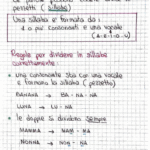 pezzetti ( sillabe )
Una sillaba è formata da :
1 o più consonanti e una vocale
(A-E-I-O-U)
Regole per dividere in sillabe
correttamente :
• una consonante sta con una vocale
e formano la sillaba
BANANA → BA - NA - NA
LUNA → LU - NA
• le doppie si dividono sempre
MAMMA → MAM - MA
NONNA → NON - NA